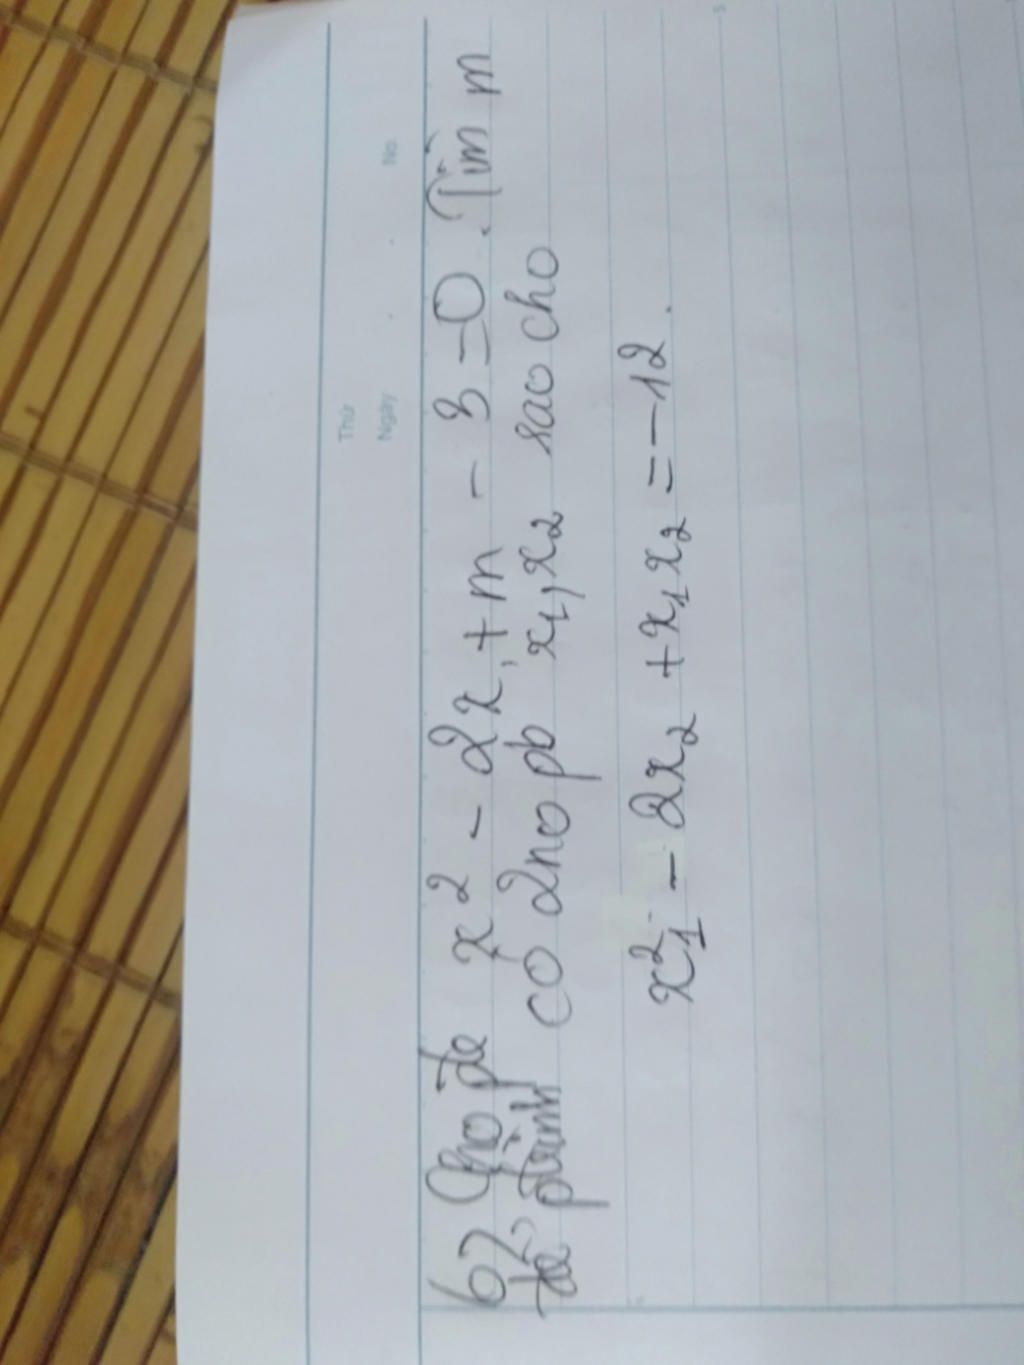 Thứ
Ngày . . No.
6) Cho pt x² - 2x + m - 3 = 0. Tìm m
để ptrình có 2no pb x₁, x₂ sao cho
x₁² - 2x₂ + x₁x₂ = -12.